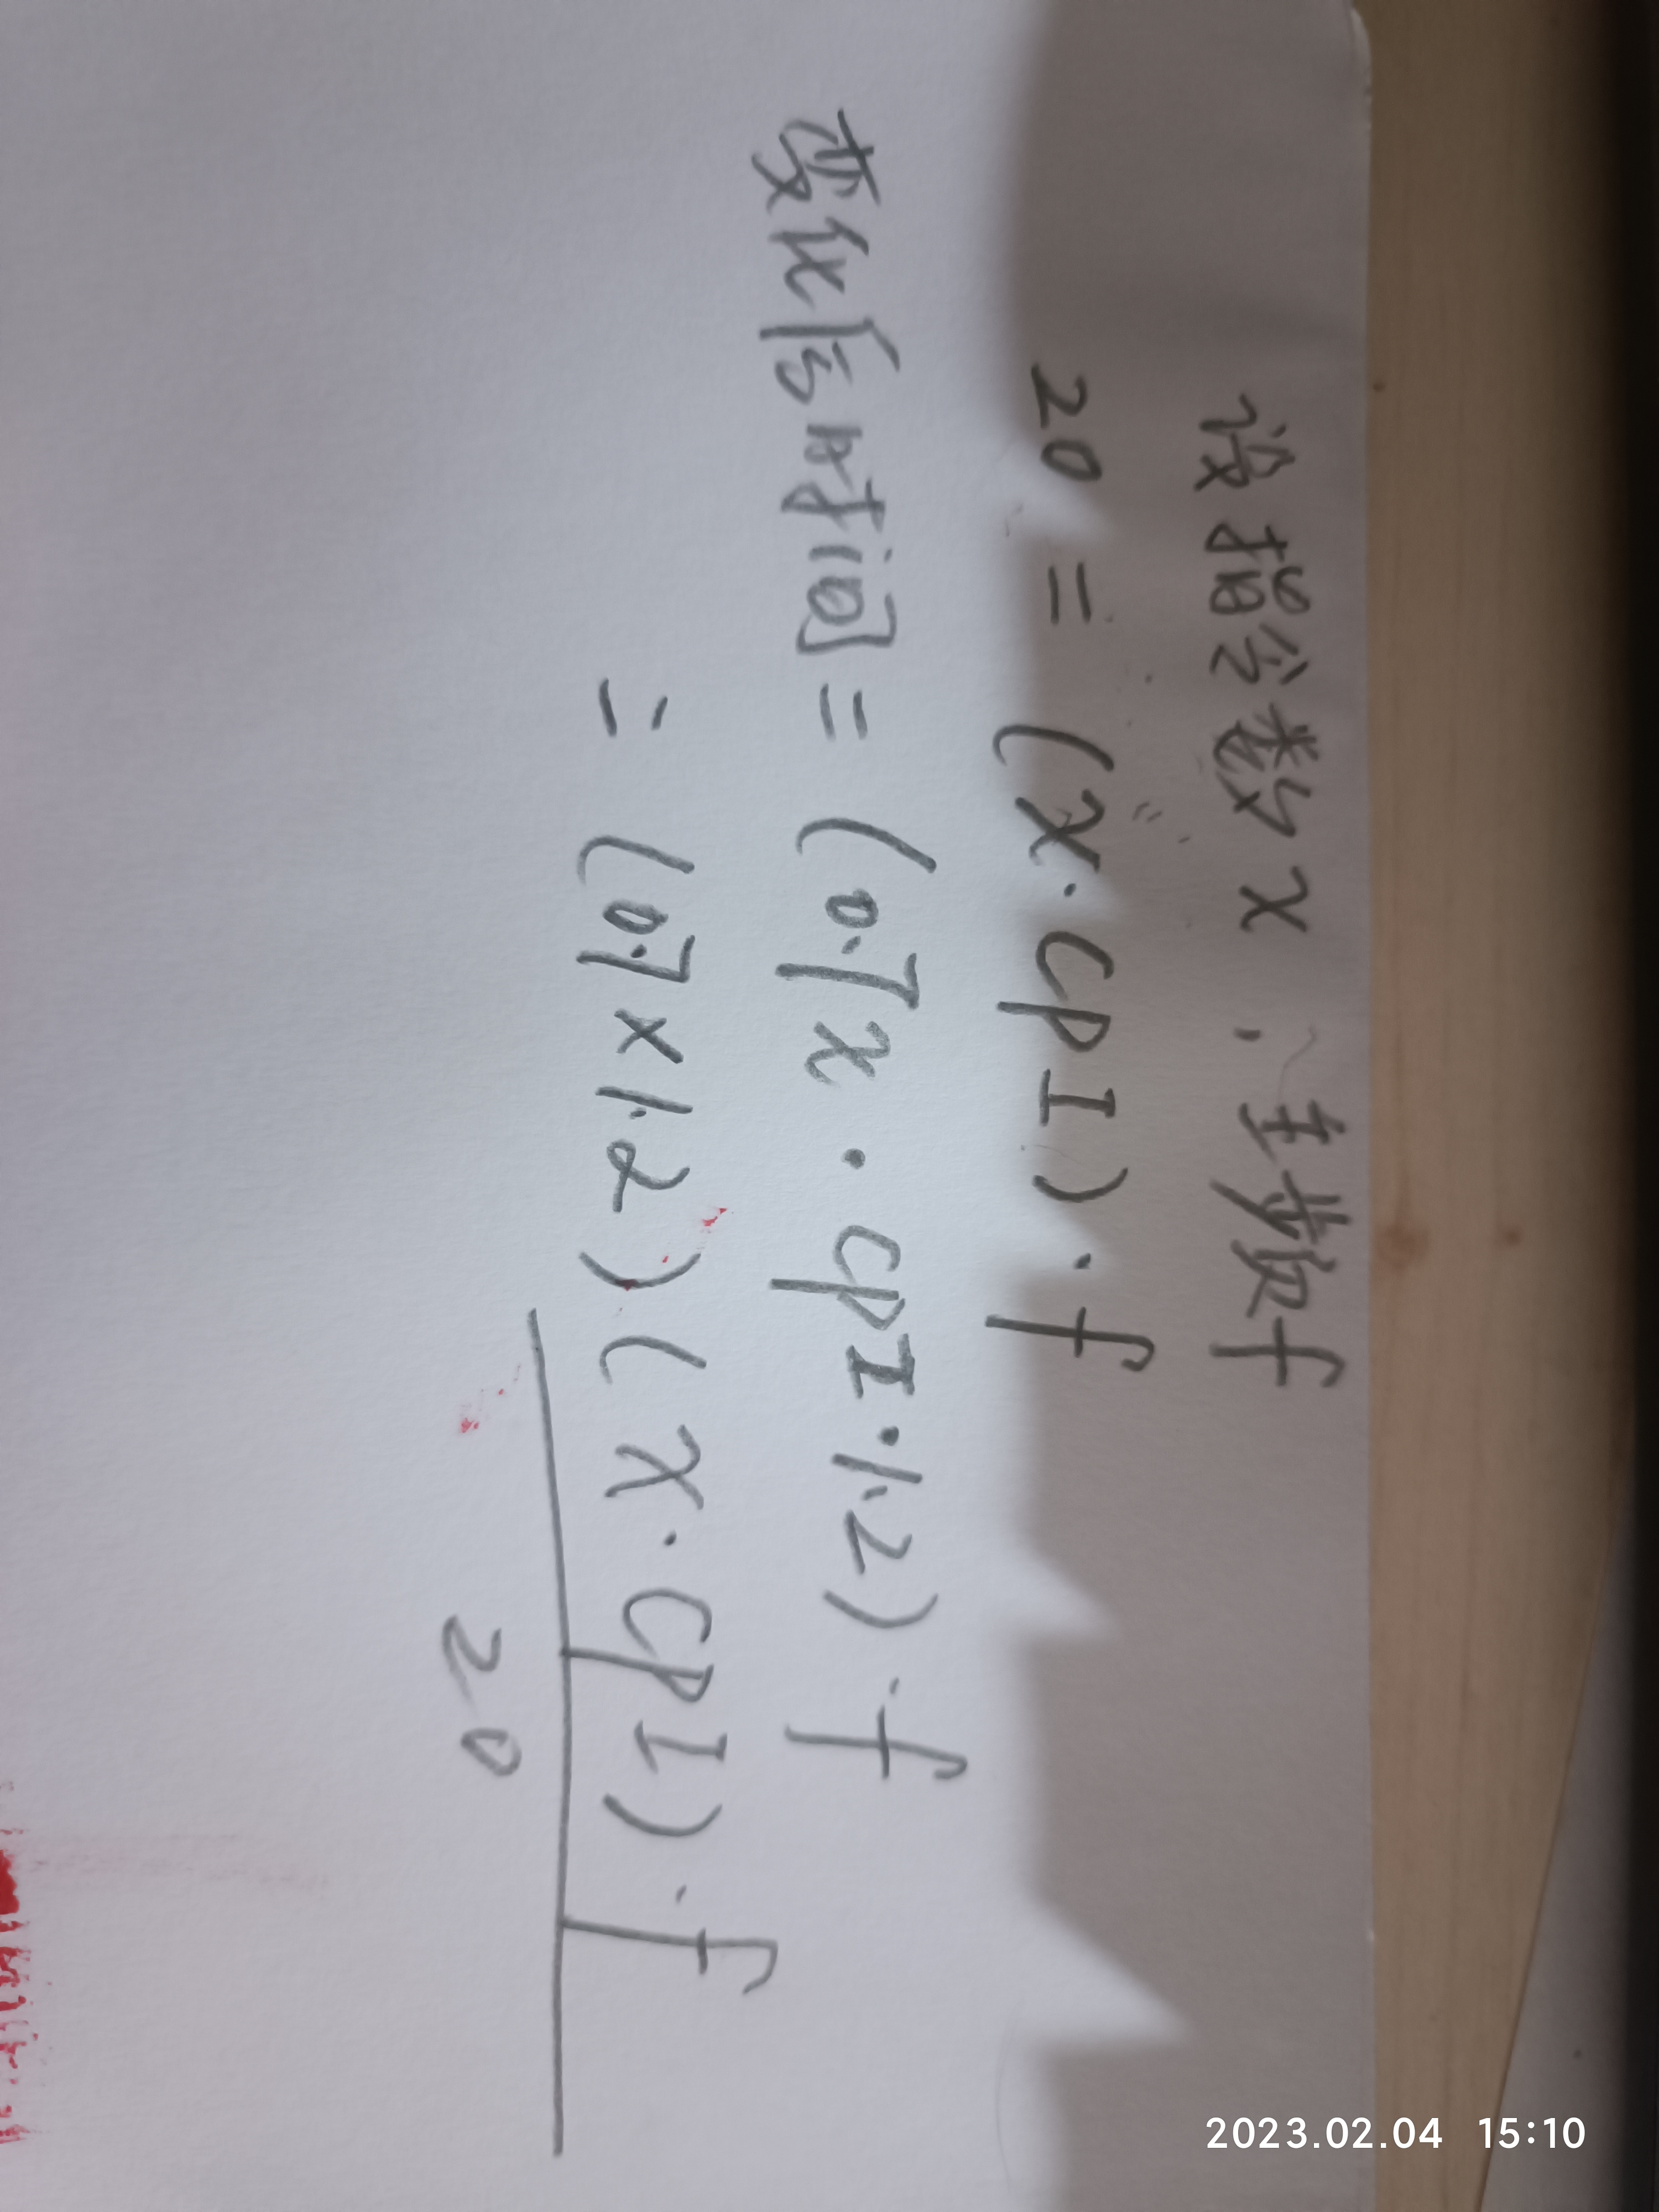 设指令数x，主频f
20 = (x·CPI)·f
变化后时间 = (0.7x·CPI·1.2)·f
= (0.7×1.2)(x·CPI)·f
20
2023.02.04 15:10